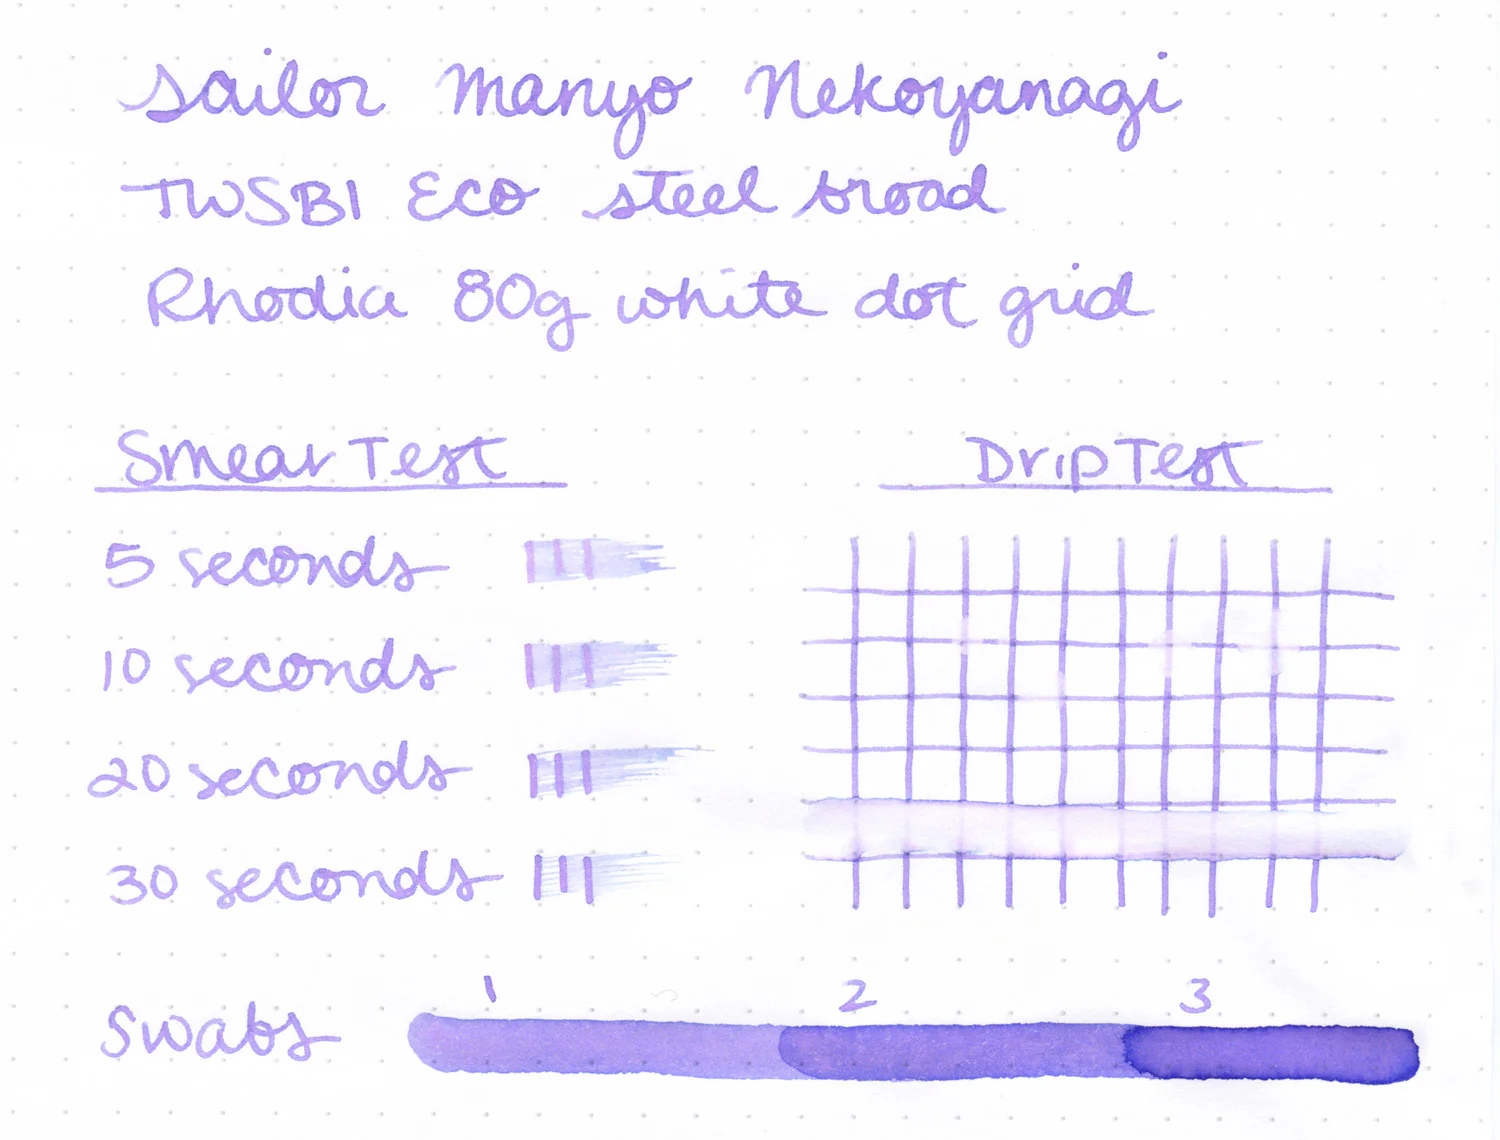 Sailor Manyo Nekoyanagi
TWSBI Eco steel broad
Rhodia 80g white dot grid
Smear Test
Drip Test
5 seconds
10 seconds
20 seconds
30 seconds
Swabs 1 2 3